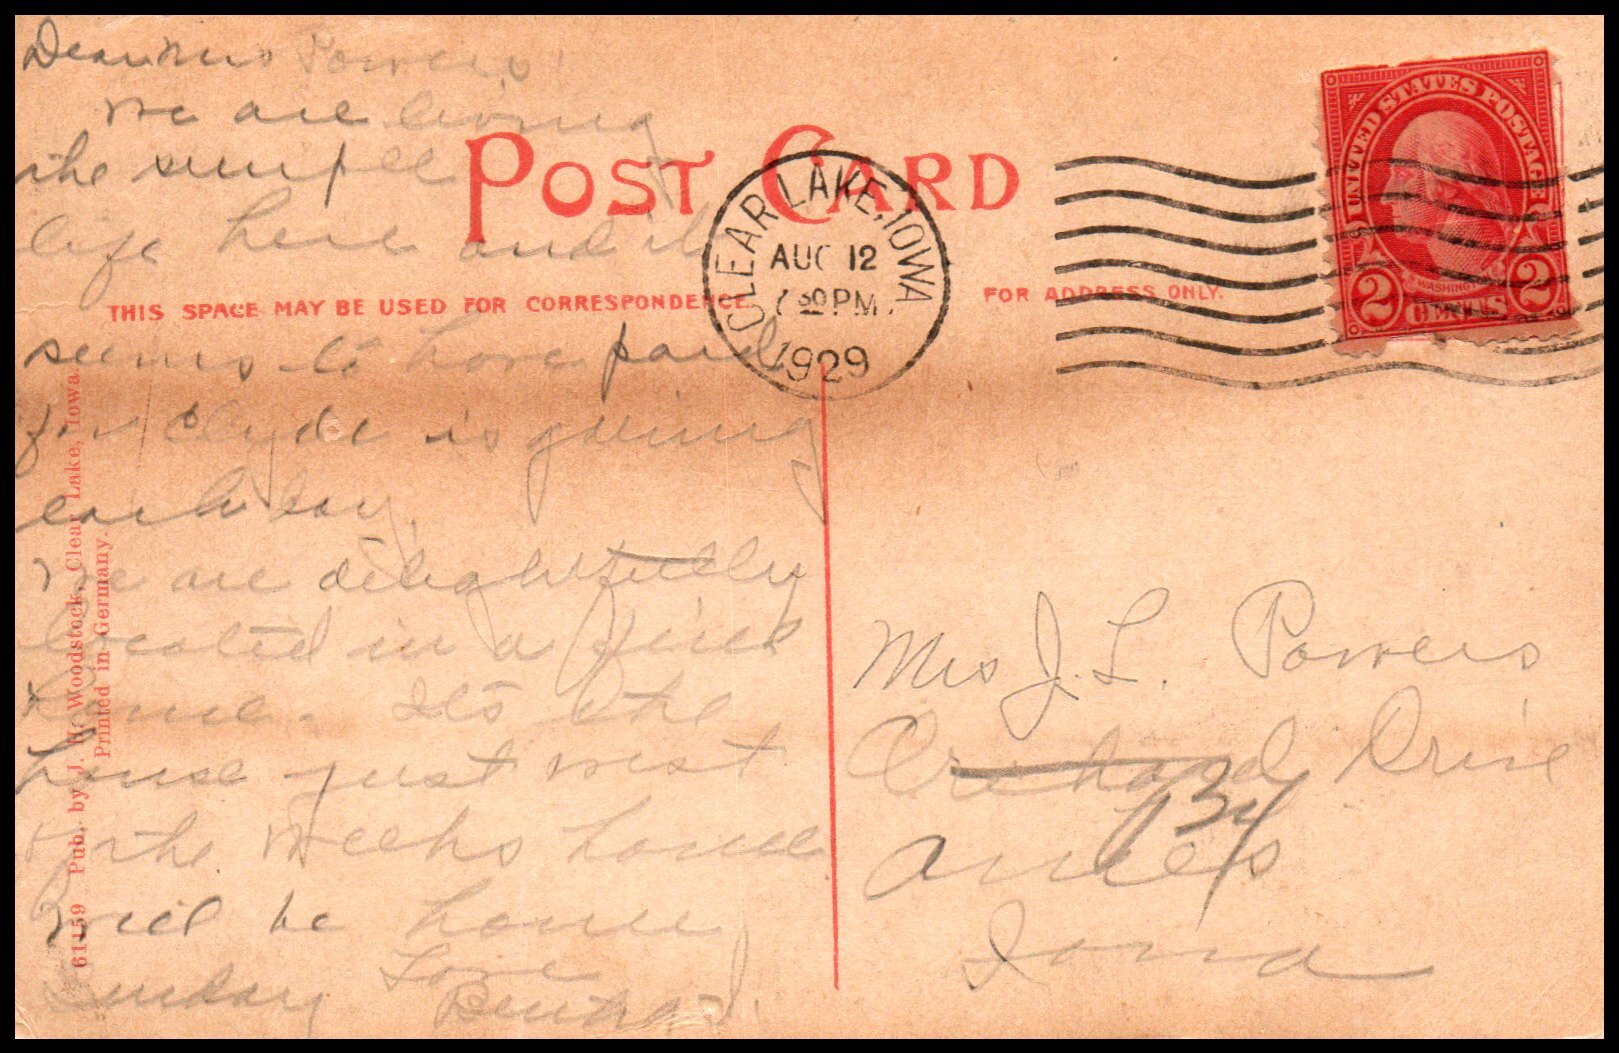 Dear Mrs Powers!
We are living
the simple
life here and it
seems to have paid
for Clyde is gaining
each day.
We are delightfully
located in a fine
home. Its the
house just west
the Weeks home
will be home
Sunday Love
POST CARD
THIS SPACE MAY BE USED FOR CORRESPONDENCE
FOR ADDRESS ONLY.
CLEAR LAKE, IOWA
AUG 12
30 PM
1929
UNITED STATES POSTAGE
WASHINGTON
2 CENTS 2
61159 Pub. by J. H. Woodstock, Clear Lake, Iowa.
Printed in Germany.
Mrs J. L. Powers
Orchard Drive
Ames
Iowa